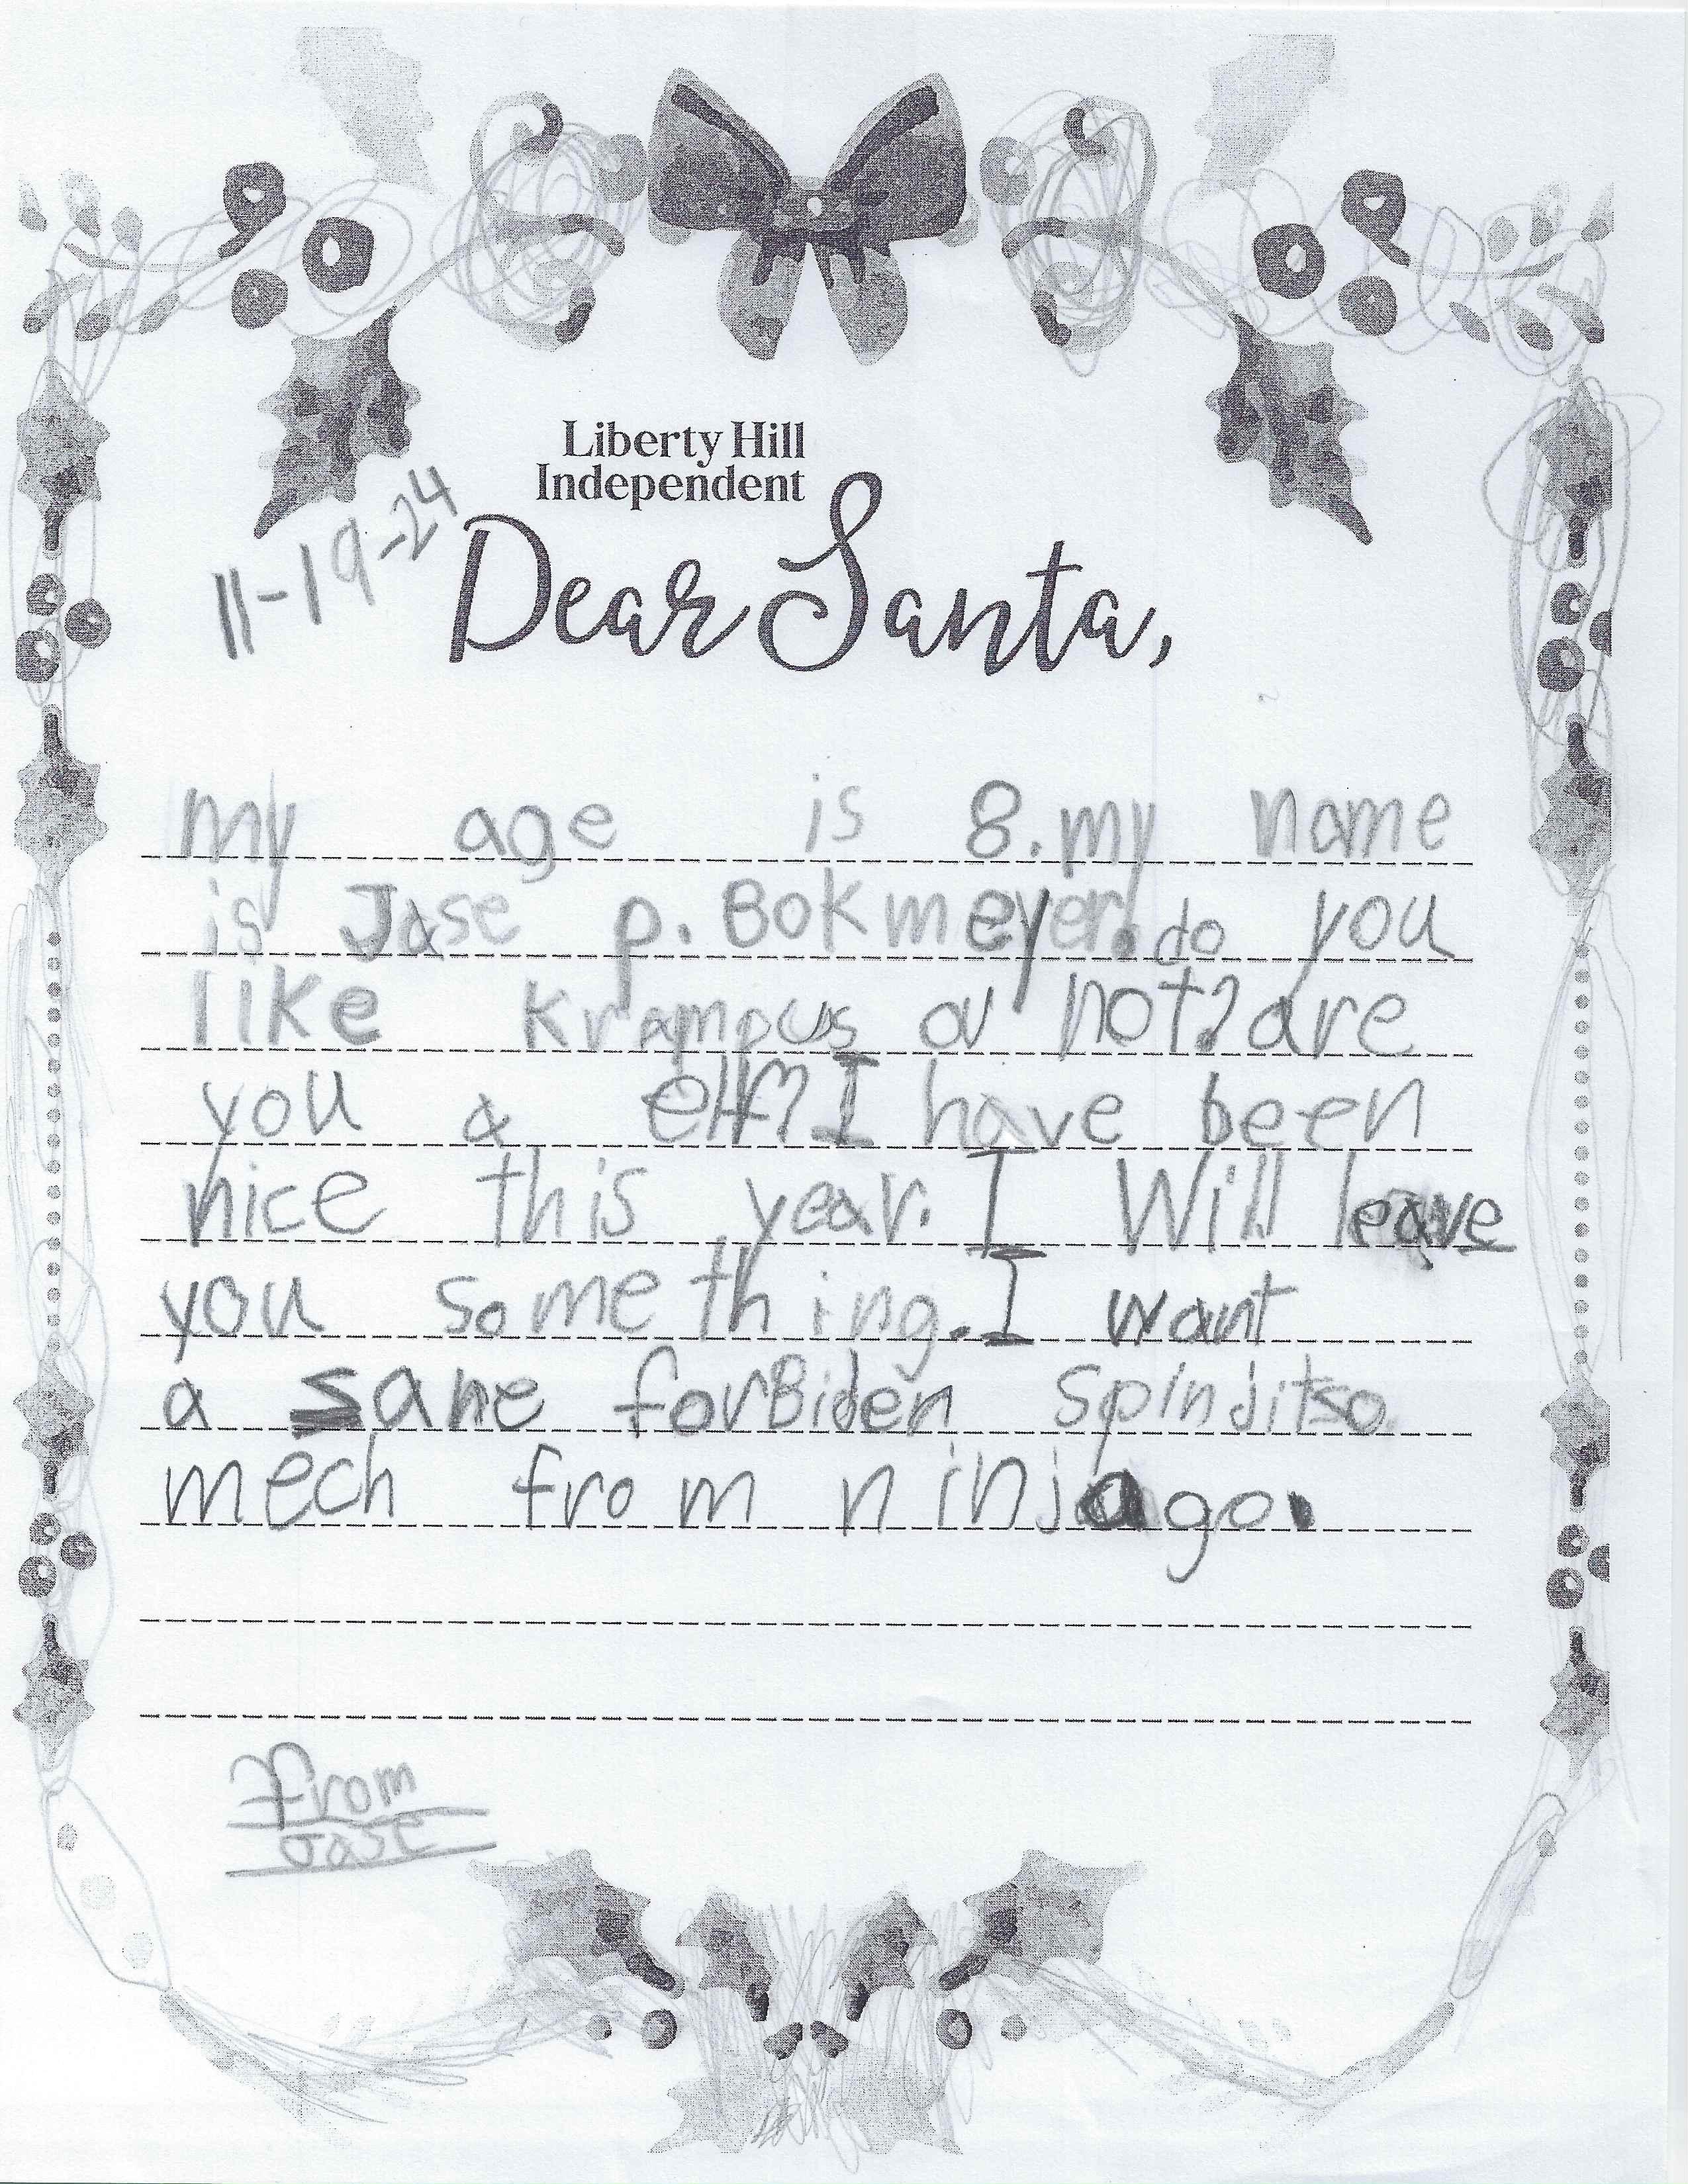 Liberty Hill
Independent
11-19-24
Dear Santa,
my age is 8. my name
is Jase p. Bokmeyer. do you
like Krampus or not? are
you a elf? I have been
nice this year. I Will leave
you something. I want
a sane forBiden Spinjitso
mech from ninjago.
from
Jase